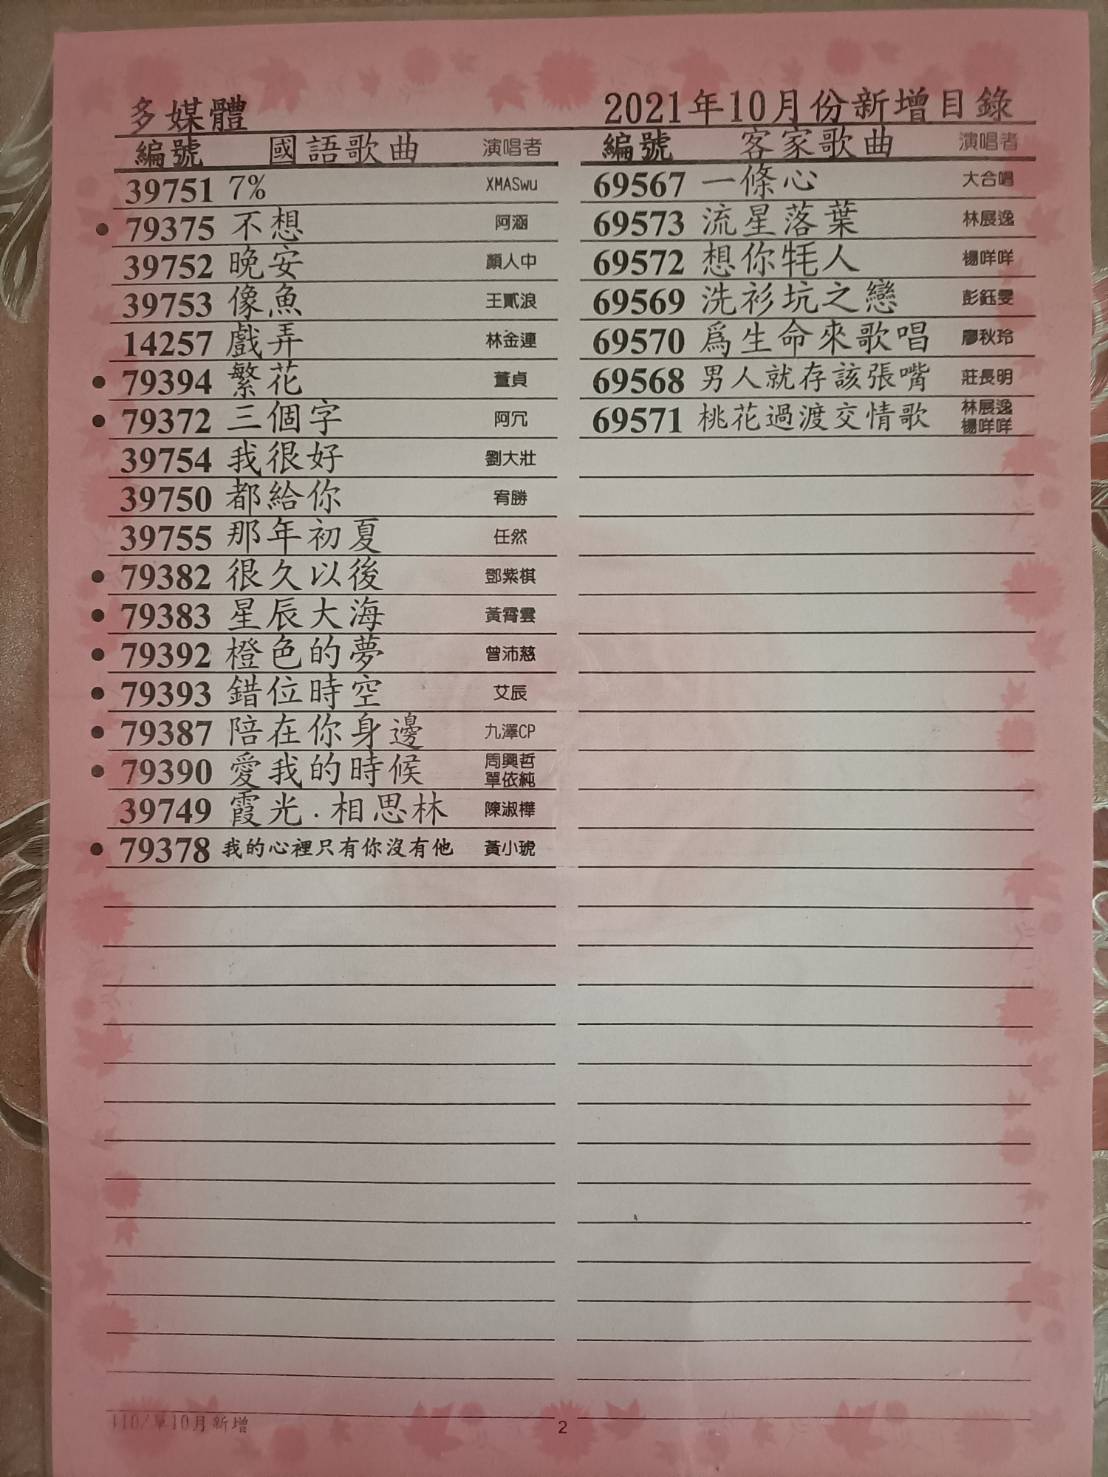 多媒體
2021年10月份新增目錄
編號 國語歌曲 演唱者
39751 7% XMASwu
● 79375 不想 阿涵
39752 晚安 顏人中
39753 像魚 王貳浪
14257 戲弄 林金連
● 79394 繁花 董貞
● 79372 三個字 阿冗
39754 我很好 劉大壯
39750 都給你 宥勝
39755 那年初夏 任然
● 79382 很久以後 鄧紫棋
● 79383 星辰大海 黃霄雲
● 79392 橙色的夢 曾沛慈
● 79393 錯位時空 艾辰
● 79387 陪在你身邊 九澤CP
● 79390 愛我的時候 周興哲 單依純
39749 霞光.相思林 陳淑樺
● 79378 我的心裡只有你沒有他 黃小琥
編號 客家歌曲 演唱者
69567 一條心 大合唱
69573 流星落葉 林展逸
69572 想你牦人 楊咩咩
69569 洗衫坑之戀 彭鈺雯
69570 爲生命來歌唱 廖秋玲
69568 男人就存該張嘴 莊長明
69571 桃花過渡交情歌 林展逸 楊咩咩
110/年10月新增
2